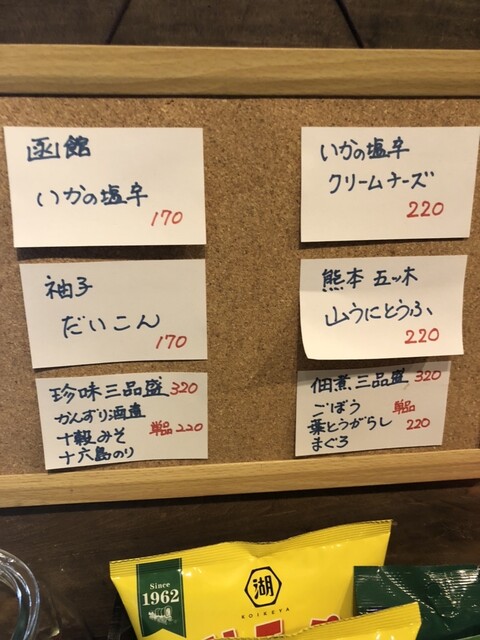 函館
いかの塩辛
170
いかの塩辛
クリームチーズ
220
柚子
だいこん
170
熊本 五ッ木
山うにとうふ
220
珍味三品盛 320
かんずり酒盗
十穀みそ 単品 220
十六島のり
佃煮三品盛 320
ごぼう 単品
葉とうがらし 220
まぐろ
Since
1962
湖
KOIKEYA